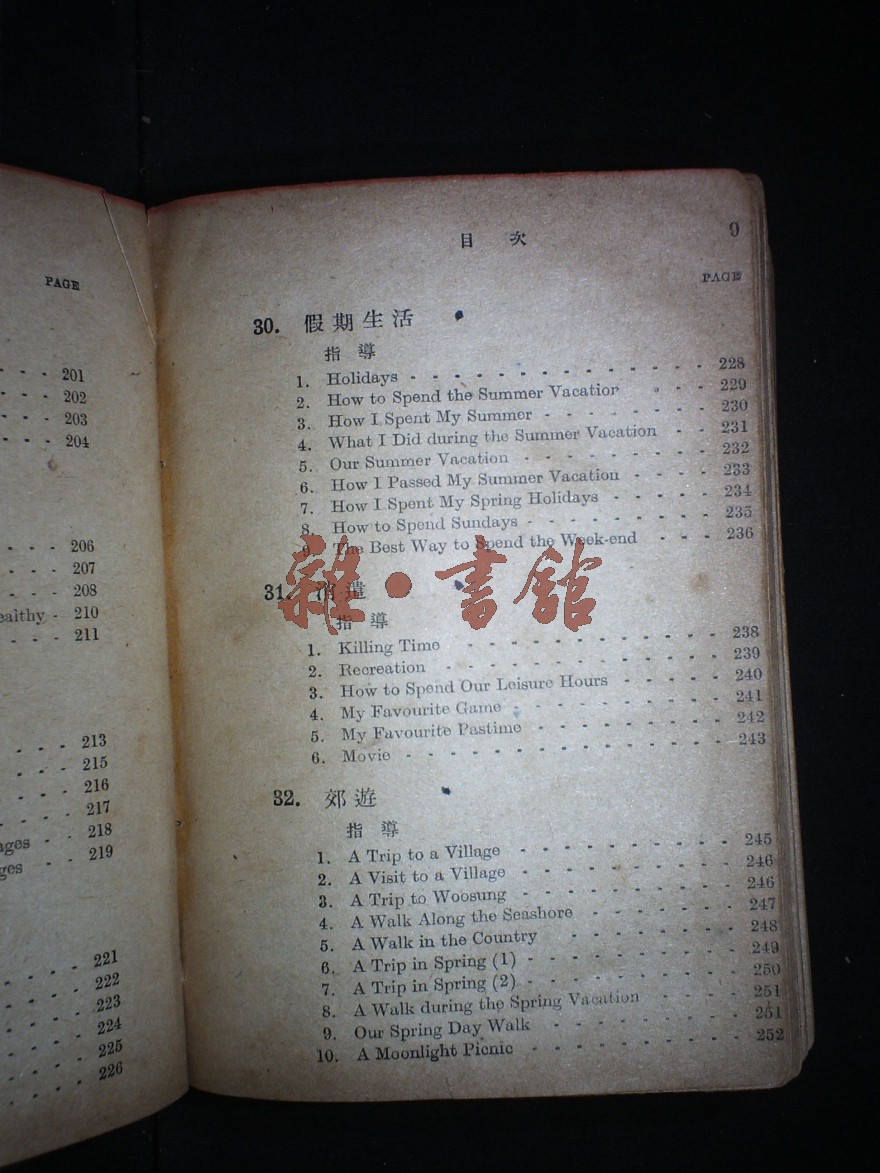 PAGE
201
202
203
204
206
207
208
ealthy - 210
211
213
215
216
217
ages - - 218
ges - - 219
221
222
223
224
225
226
目 次 9
PAGE
30. 假期生活
指導
1. Holidays - - - - - - - - - - - - - 228
2. How to Spend the Summer Vacation - - - 229
3. How I Spent My Summer - - - - - - - - 230
4. What I Did during the Summer Vacation - - 231
5. Our Summer Vacation - - - - - - - - 232
6. How I Passed My Summer Vacation - - - - 233
7. How I Spent My Spring Holidays - - - - - 234
8. How to Spend Sundays - - - - - - - - 235
9. The Best Way to Spend the Week-end - - - 236
31. 消遣
雜·書館
指導
1. Killing Time - - - - - - - - - - - 238
2. Recreation - - - - - - - - - - - - 239
3. How to Spend Our Leisure Hours - - - - - 240
4. My Favourite Game - - - - - - - - - 241
5. My Favourite Pastime - - - - - - - - 242
6. Movie - - - - - - - - - - - - - - 243
32. 郊遊
指導
1. A Trip to a Village - - - - - - - - - 245
2. A Visit to a Village - - - - - - - - - 246
3. A Trip to Woosung - - - - - - - - - 246
4. A Walk Along the Seashore - - - - - - 247
5. A Walk in the Country - - - - - - - 248
6. A Trip in Spring (1) - - - - - - - - - 249
7. A Trip in Spring (2) - - - - - - - - - 250
8. A Walk during the Spring Vacation - - - - 251
9. Our Spring Day Walk - - - - - - - - 251
10. A Moonlight Picnic - - - - - - - - - 252